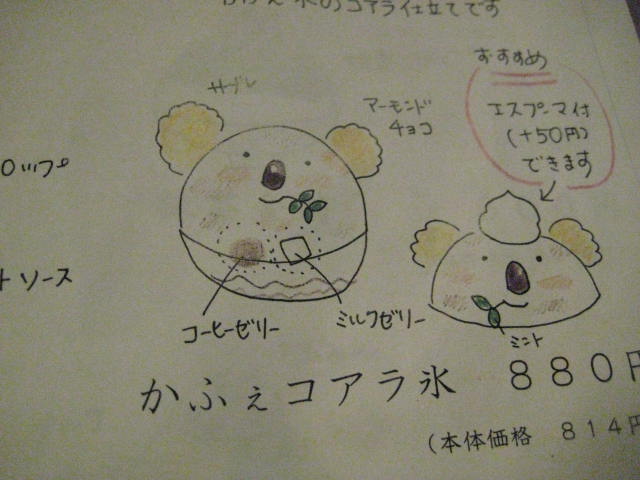 氷のコアラ仕立てです
おすすめ
サブレ
アーモンド
チョコ
エスプーマ付
(+50円)
できます
ロップ
トソース
コーヒーゼリー
ミルクゼリー
ミント
かふぇコアラ氷 880円
(本体価格 814円